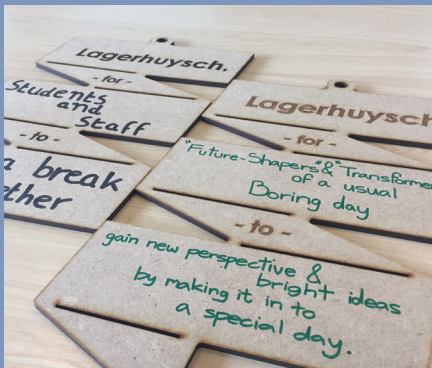 Lagerhuysch.
- for -
Students
and
Staff
- to -
a break
Lagerhuysch
- for -
"Future-Shapers" & "Transforme
of a usual
Boring day
- to -
gain new perspective &
bright ideas
by making it in to
a special day.